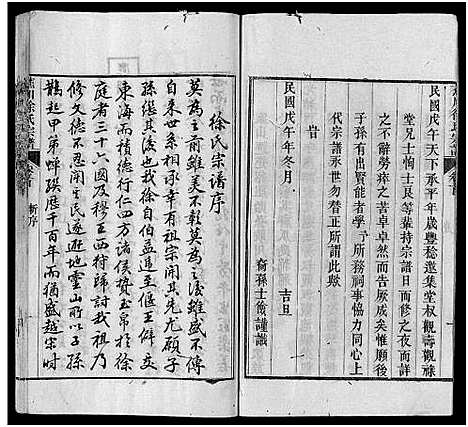 民國戊午天下承平年歲豐稔邀集堂叔觀壽觀祿
堂兄士恂士艮等耕持宗譜日而夜之夜而詳
之不辭勞瘁之苦卓卓然而告厥成矣惟願後
子孫有出賢能者學所務祠事協力同心上
代宗譜永世勿替正所謂此歟
旹
民國戊午年冬月 吉旦
裔孫士俊謹識
徐氏宗譜序
莫為之前雖美不彰莫為之後雖盛不傳
自來世家相承幸有祖宗開其先尤願子
孫繼其後也自伯益遞至偃王僻交
東海而積德行仁四方諸侯執玉帛於徐
庭者三十六國及穆王西狩歸時我祖乃
修文德不忍闘其民遂逝地靈山所以子孫
鵲起甲第蟬聯歷千百年而猶盛越宋時
徐氏宗譜
卷首
新序